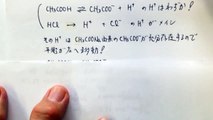 CH₃COOH ⇌ CH₃COO⁻ + H⁺ のHはわずか!
HCl → H⁺ + Cl⁻ のH⁺がメイン
そのH⁺はCH₃COONa由来のCH₃COO⁻が充分存在するので
平衡が左へ移動!